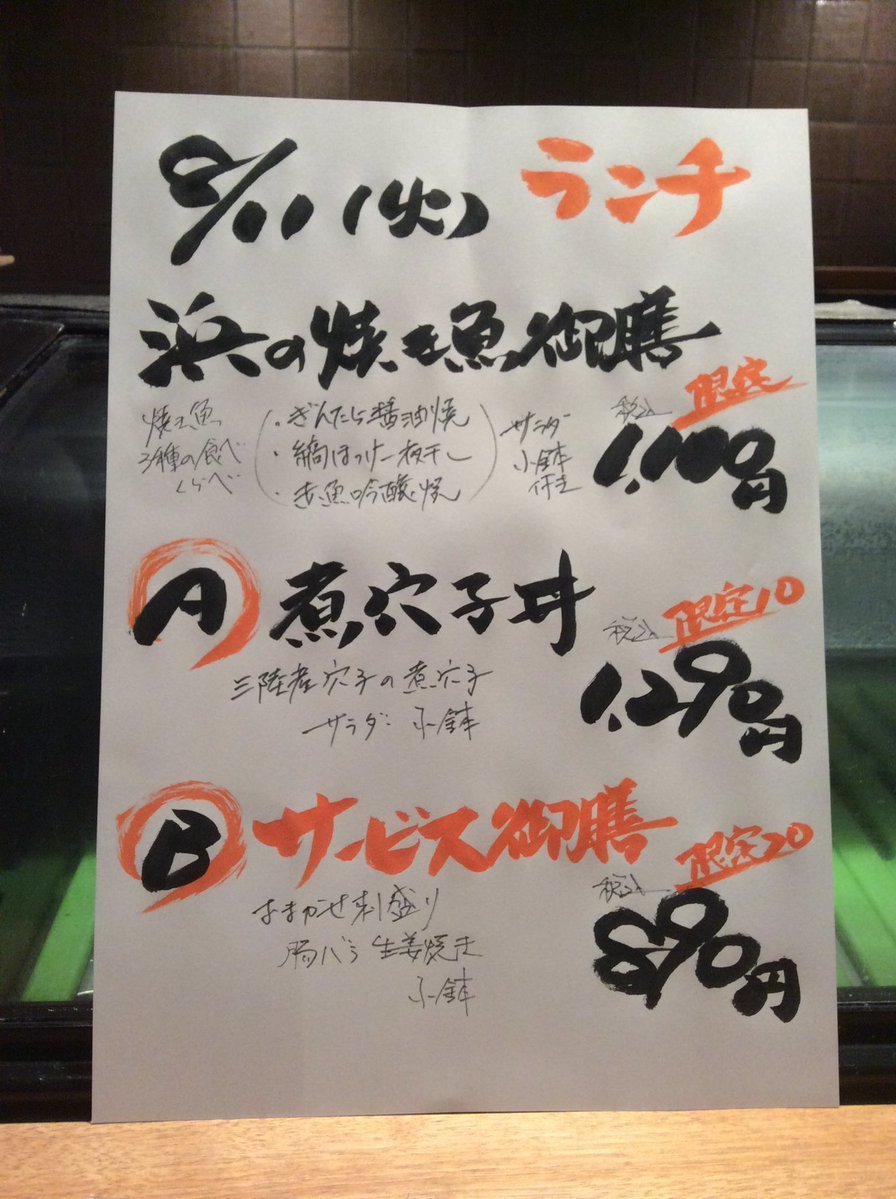 8/11(火) ランチ
浜の焼き魚御膳
限定
焼き魚
3種の食べ
くらべ
・ぎんだら醤油焼
・縞ほっけ一夜干し
・赤魚吟醸焼
サラダ
小鉢
付き
税込
1,100円
A 煮穴子丼
限定10
三陸産穴子の煮穴子
サラダ 小鉢
税込
1,290円
B サービス御膳
限定20
おまかせ刺盛り
豚バラ生姜焼き
小鉢
税込
890円